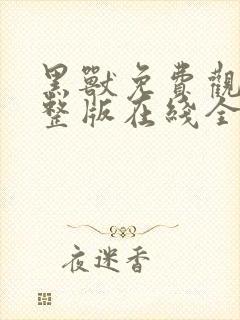 黑獸免費觀
整版在綫全
夜迷香